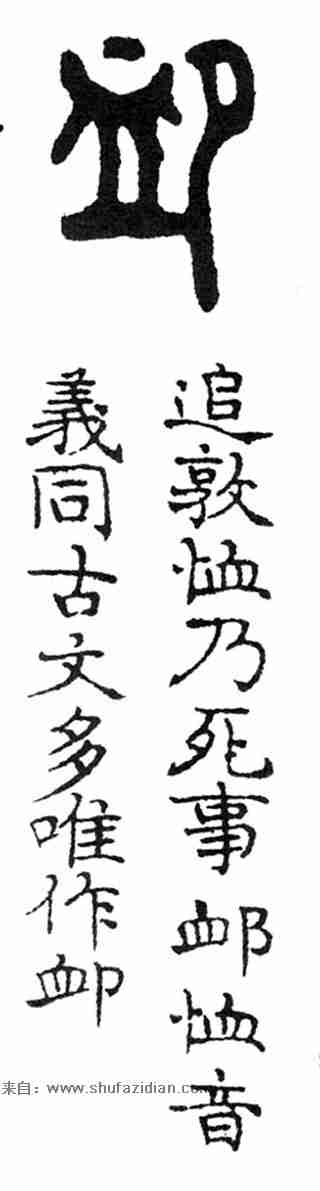 卹
追敦恤乃死事卹恤音
義同古文多唯作卹
来自：www.shufazidian.co